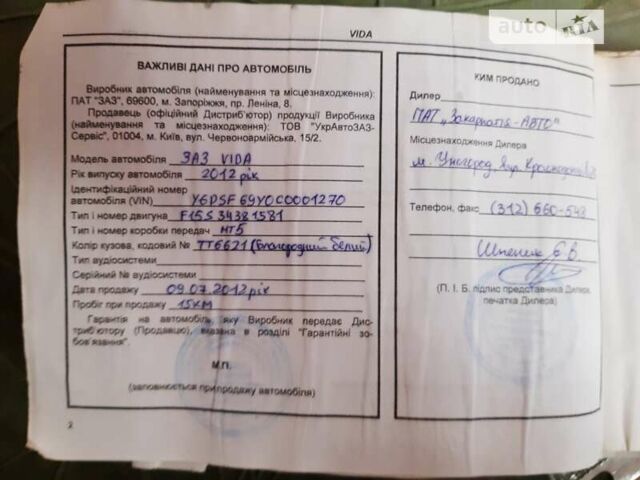 auto RIA
VIDA
ВАЖЛИВІ ДАНІ ПРО АВТОМОБІЛЬ
Виробник автомобіля (найменування та місцезнаходження):
ПАТ "ЗАЗ", 69600, м. Запоріжжя, пр. Леніна, 8.
Продавець (офіційний Дистриб'ютор) продукції Виробника
(найменування та місцезнаходження): ТОВ "УкрАвтоЗАЗ-
Сервіс", 01004, м. Київ, вул. Червоноармійська, 15/2.
Модель автомобіля ЗАЗ VIDA
Рік випуску автомобіля 2012 рік
Ідентифікаційний номер
автомобіля (VIN) Y6DSF69Y0C0001270
Тип і номер двигуна F15S34381581
Тип і номер коробки передач МТ5
Колір кузова, кодовий № ТТ6621 (Благородний белий)
Тип аудіосистеми
Серійний № аудіосистеми
Дата продажу 09.07.2012 рік
Пробіг при продажу 15КМ
Гарантія на автомобіль, яку Виробник передає Дис-
триб'ютору (Продавцю), вказана в розділі "Гарантійні зо-
бов'язання".
М.П.
(заповнюється при продажу автомобіля)
2
КИМ ПРОДАНО
Дилер
ПАТ „Закарпаття-АВТО"
Місцезнаходження Дилера
м. Ужгород, вул.
Телефон, факс (312) 660-548
Шпеник Є.В.
(П. І. Б. підпис представника Дилера,
печатка Дилера)